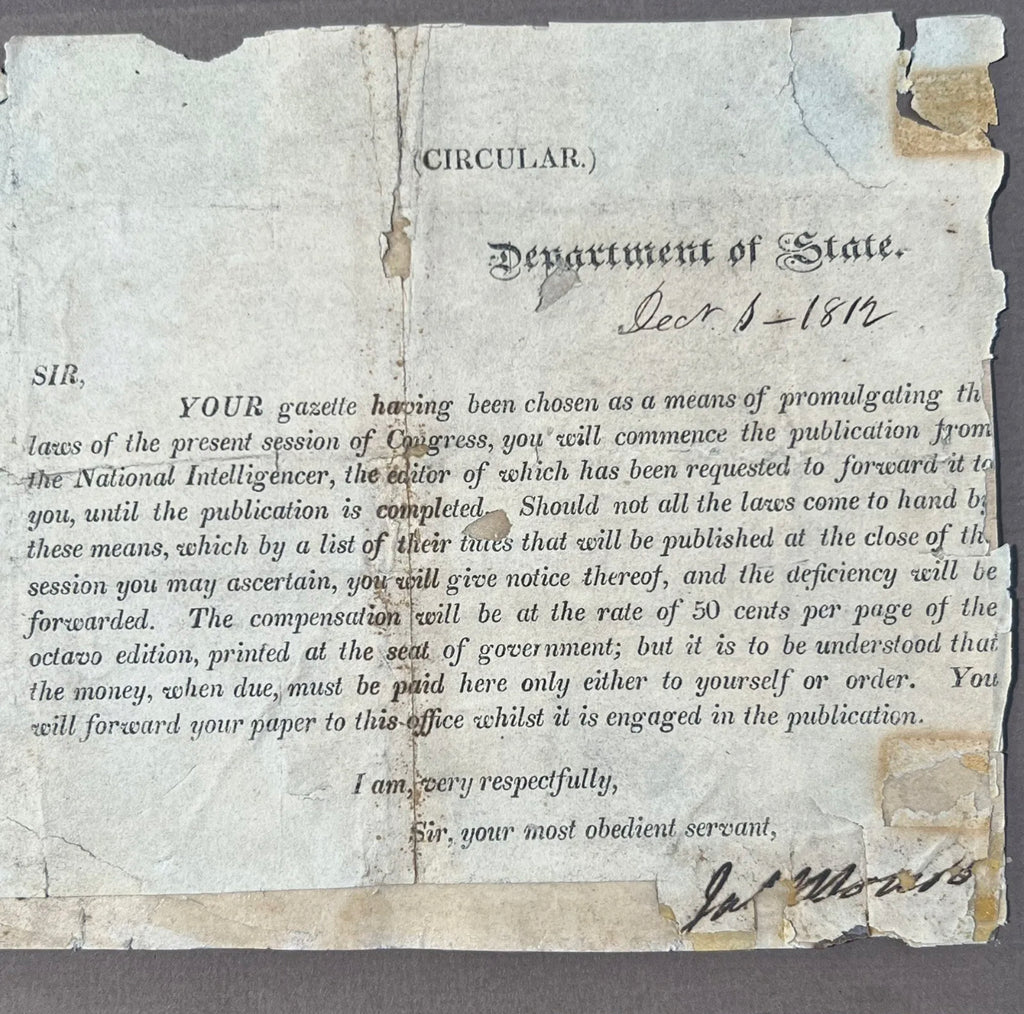 (CIRCULAR.)
Department of State.
Decr 1 – 1812
SIR,
YOUR gazette having been chosen as a means of promulgating th
laws of the present session of Congress, you will commence the publication from
the National Intelligencer, the editor of which has been requested to forward it to
you, until the publication is completed. Should not all the laws come to hand by
these means, which by a list of their titles that will be published at the close of th
session you may ascertain, you will give notice thereof, and the deficiency will be
forwarded. The compensation will be at the rate of 50 cents per page of the
octavo edition, printed at the seat of government; but it is to be understood that
the money, when due, must be paid here only either to yourself or order. You
will forward your paper to this office whilst it is engaged in the publication.
I am, very respectfully,
Sir, your most obedient servant,
Jas Monroe